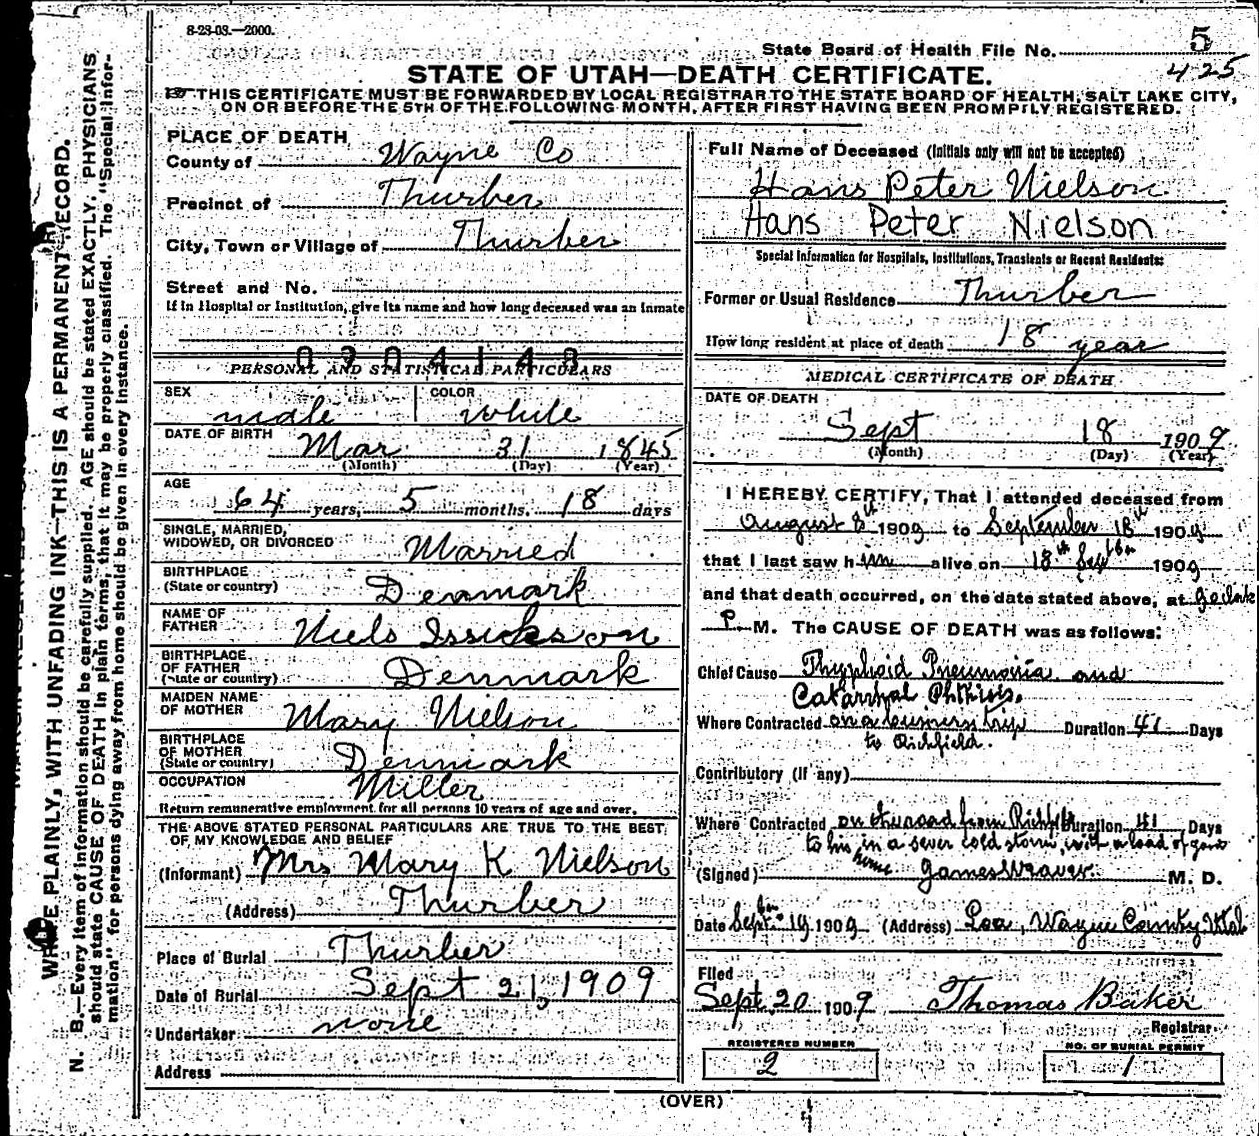 8-23-03.—2000.
5
State Board of Health File No.
425
STATE OF UTAH—DEATH CERTIFICATE.
THIS CERTIFICATE MUST BE FORWARDED BY LOCAL REGISTRAR TO THE STATE BOARD OF HEALTH, SALT LAKE CITY,
ON OR BEFORE THE 5TH OF THE FOLLOWING MONTH, AFTER FIRST HAVING BEEN PROMPTLY REGISTERED.
WRITE PLAINLY, WITH UNFADING INK—THIS IS A PERMANENT RECORD.
N. B.—Every item of information should be carefully supplied. AGE should be stated EXACTLY. PHYSICIANS
should state CAUSE OF DEATH in plain terms, that it may be properly classified. The "Special Infor-
mation" for persons dying away from home should be given in every instance.
PLACE OF DEATH
County of Wayne Co
Precinct of Thurber
City, Town or Village of Thurber
Street and No.
If in Hospital or Institution, give its name and how long deceased was an inmate
0904148
PERSONAL AND STATISTICAL PARTICULARS
SEX male COLOR white
DATE OF BIRTH Mar 31 1845
(Month) (Day) (Year)
AGE
64 years, 5 months, 18 days
SINGLE, MARRIED,
WIDOWED, OR DIVORCED Married
BIRTHPLACE
(State or country) Denmark
NAME OF
FATHER Niels Issickson
BIRTHPLACE
OF FATHER
(State or country) Denmark
MAIDEN NAME
OF MOTHER Mary Nielson
BIRTHPLACE
OF MOTHER
(State or country) Denmark
OCCUPATION Miller
Return remunerative employment for all persons 10 years of age and over.
THE ABOVE STATED PERSONAL PARTICULARS ARE TRUE TO THE BEST
OF MY KNOWLEDGE AND BELIEF
(Informant) Mrs Mary K Nielson
(Address) Thurber
Place of Burial Thurber
Date of Burial Sept 21, 1909
Undertaker none
Address
Full Name of Deceased (Initials only will not be accepted)
Hans Peter Nielson
Hans Peter Nielson
Special Information for Hospitals, Institutions, Transients or Recent Residents:
Former or Usual Residence Thurber
How long resident at place of death 18 year
MEDICAL CERTIFICATE OF DEATH
DATE OF DEATH
Sept 18 1909
(Month) (Day) (Year)
I HEREBY CERTIFY, That I attended deceased from
August 8th 1909 to September 18th 1909
that I last saw him alive on 18th Sept 1909
and that death occurred, on the date stated above, at
P. M. The CAUSE OF DEATH was as follows:
Chief Cause Thyphoid Pneumonia and
Catarrhal Phthisis.
Where Contracted on a trip Duration 41 Days
to Richfield.
Contributory (if any)
Where Contracted on the road from Duration 41 Days
to his in a sever cold storm, with a load of
home
(Signed) James Weaver. M. D.
Date Sept. 19 1909 (Address) Loa, Wayne County Utah
Filed
Sept. 20 1909 Thomas Baker
Registrar
REGISTERED NUMBER
2
NO. OF BURIAL PERMIT
1
(OVER)